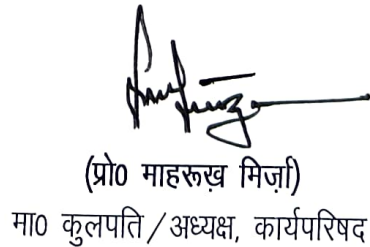 (प्रो0 माहरूख़ मिर्ज़ा)
मा0 कुलपति / अध्यक्ष, कार्यपरिषद